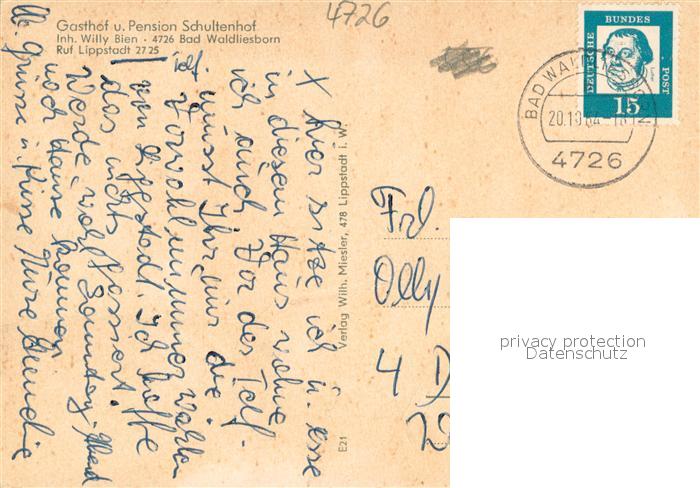 Gasthof u. Pension Schultenhof
Inh. Willy Bien · 4726 Bad Waldliesborn
Ruf Lippstadt 27 25
4726
DEUTSCHE
BUNDES
POST
15
BAD WALDLIESBORN
20.10.64
4726
X hier sitze ich u. esse
in diesem Haus wohne
ich auch. Vor des Telf.
müsst Ihr nur die
Vorwahlnummer wählen
von Lippstadt. Ich hoffe
das nichts passiert.
Werde wohl Sonntag-Abend
nach Hause kommen
Grüsse u. Küsse
Verlag Wilh. Miesler, 478 Lippstadt i. W.
E21
Frl.
Olly
4 D
privacy protection
Datenschutz